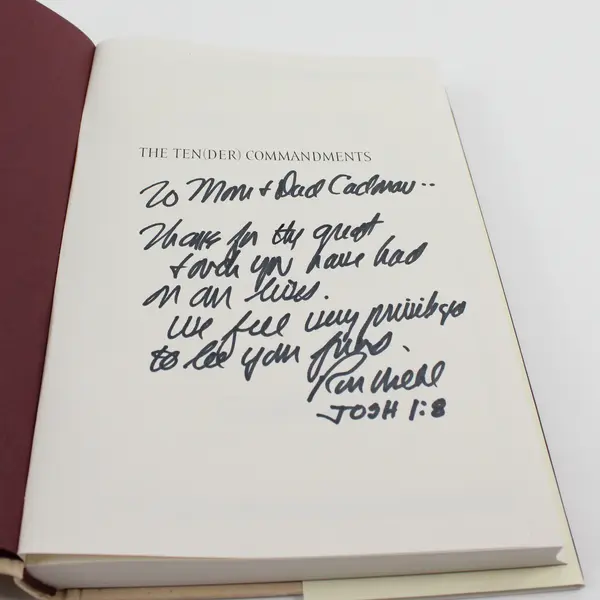 THE TEN(DER) COMMANDMENTS
To Mom + Dad Cadman..
Thanks for the great
touch you have had
on our lives.
We feel very privilege
to be your friends.
Ron Mehl
JOSH 1:8